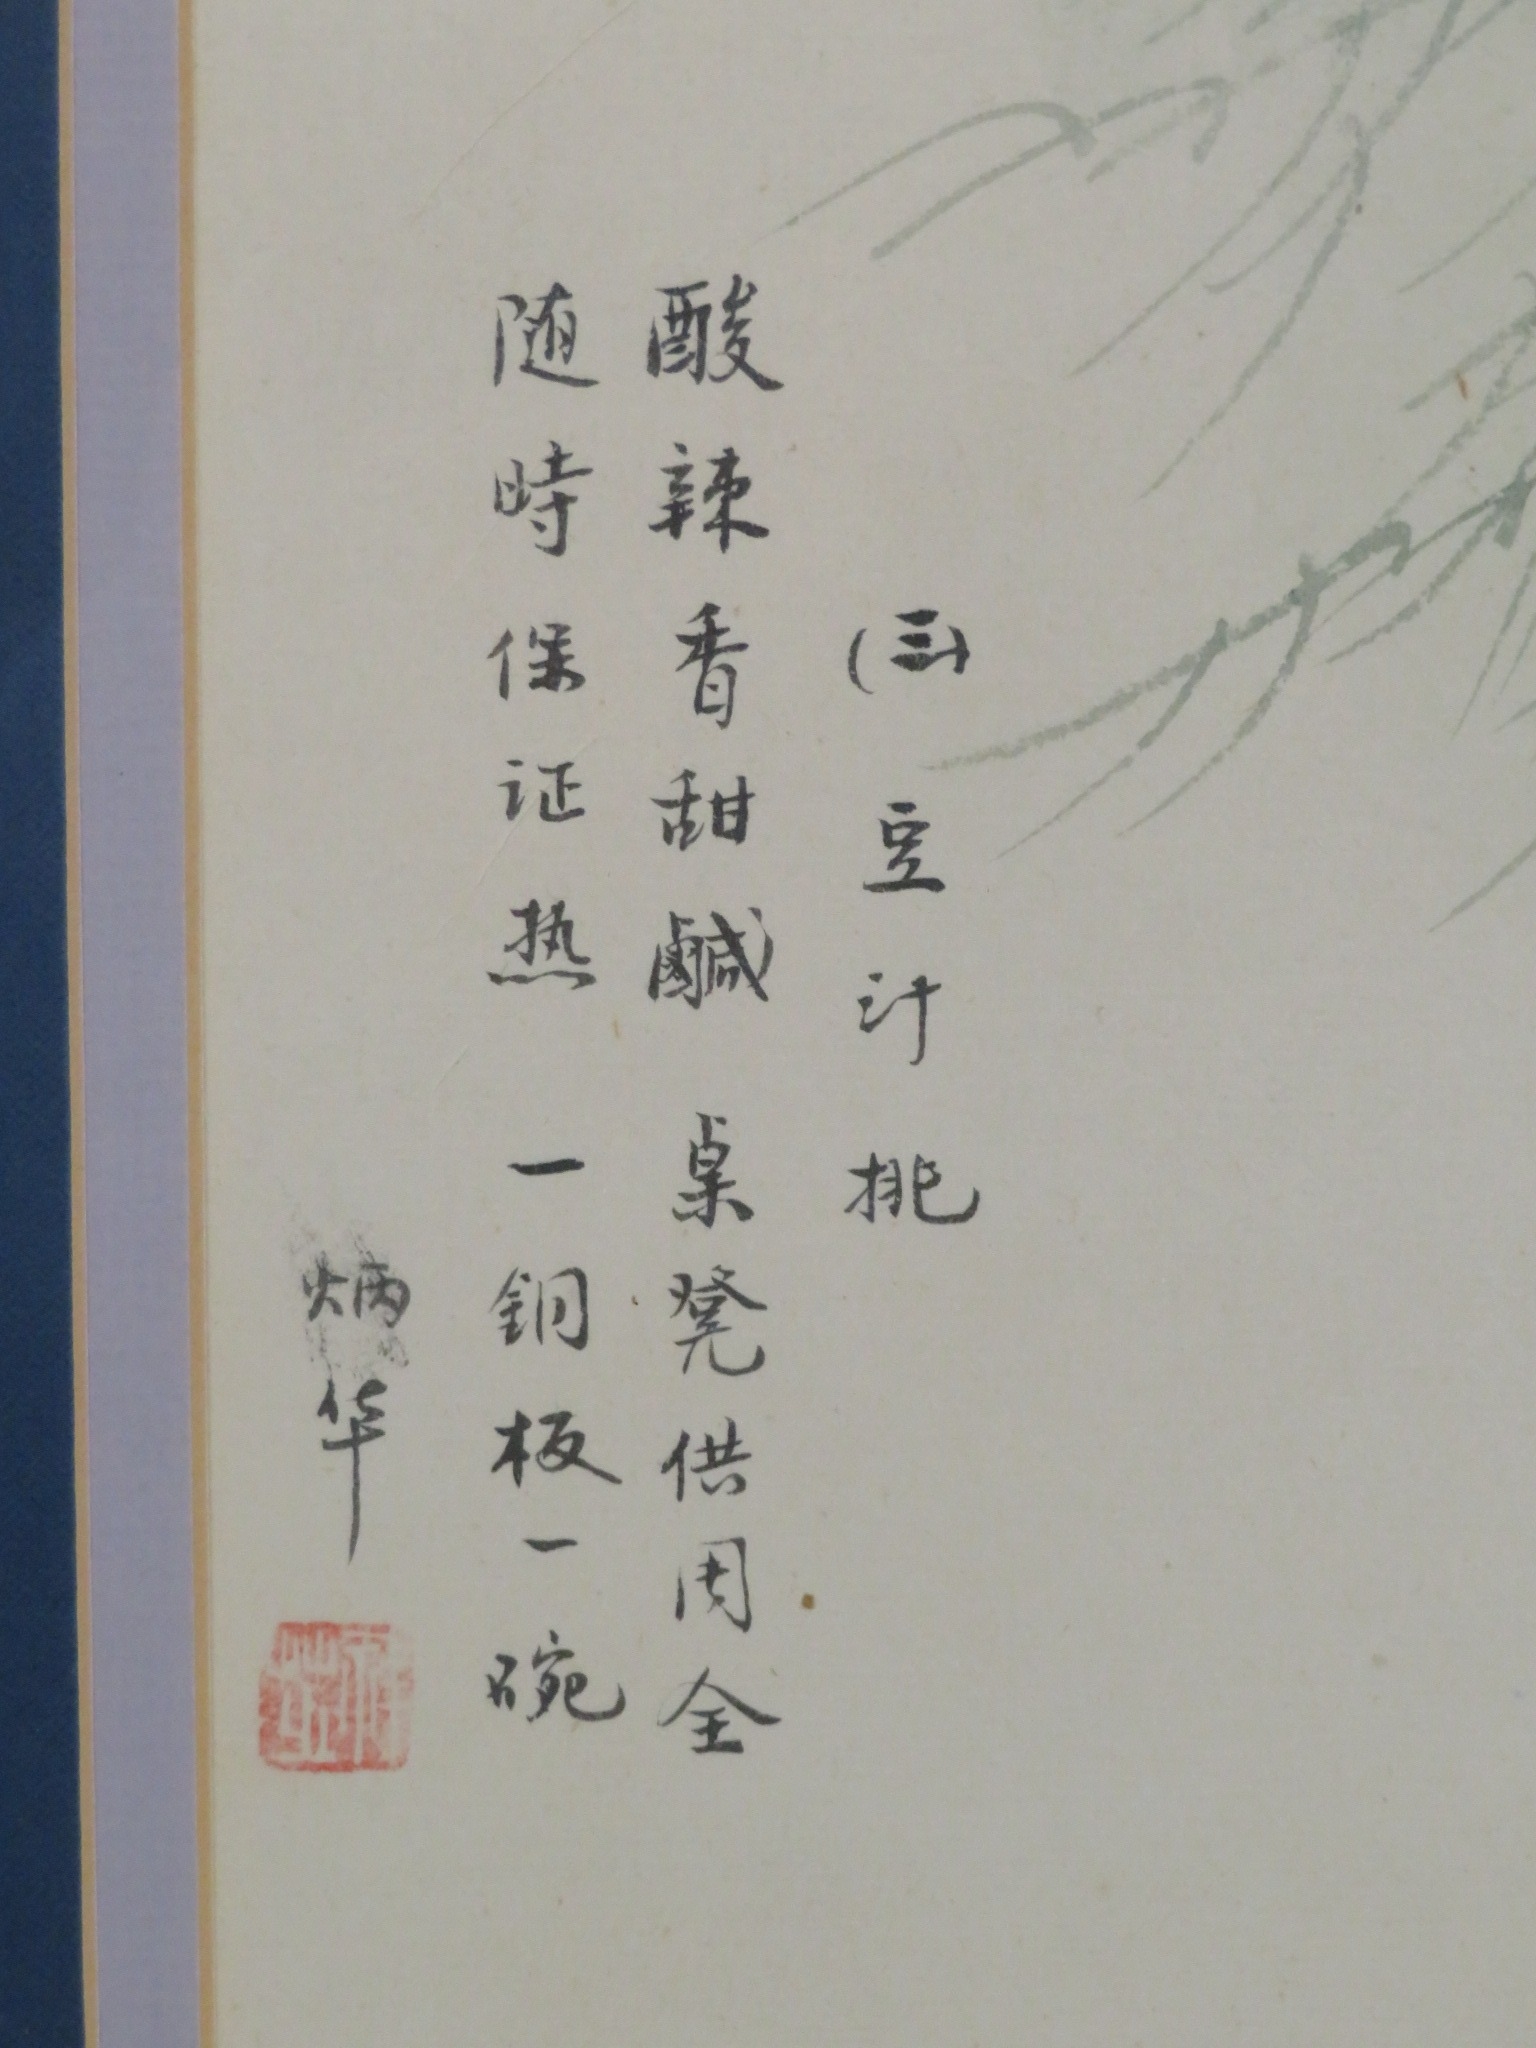 (三) 豆汁挑
酸辣香甜鹹 桌凳供用全
随時保证热 一铜板一碗
炳华